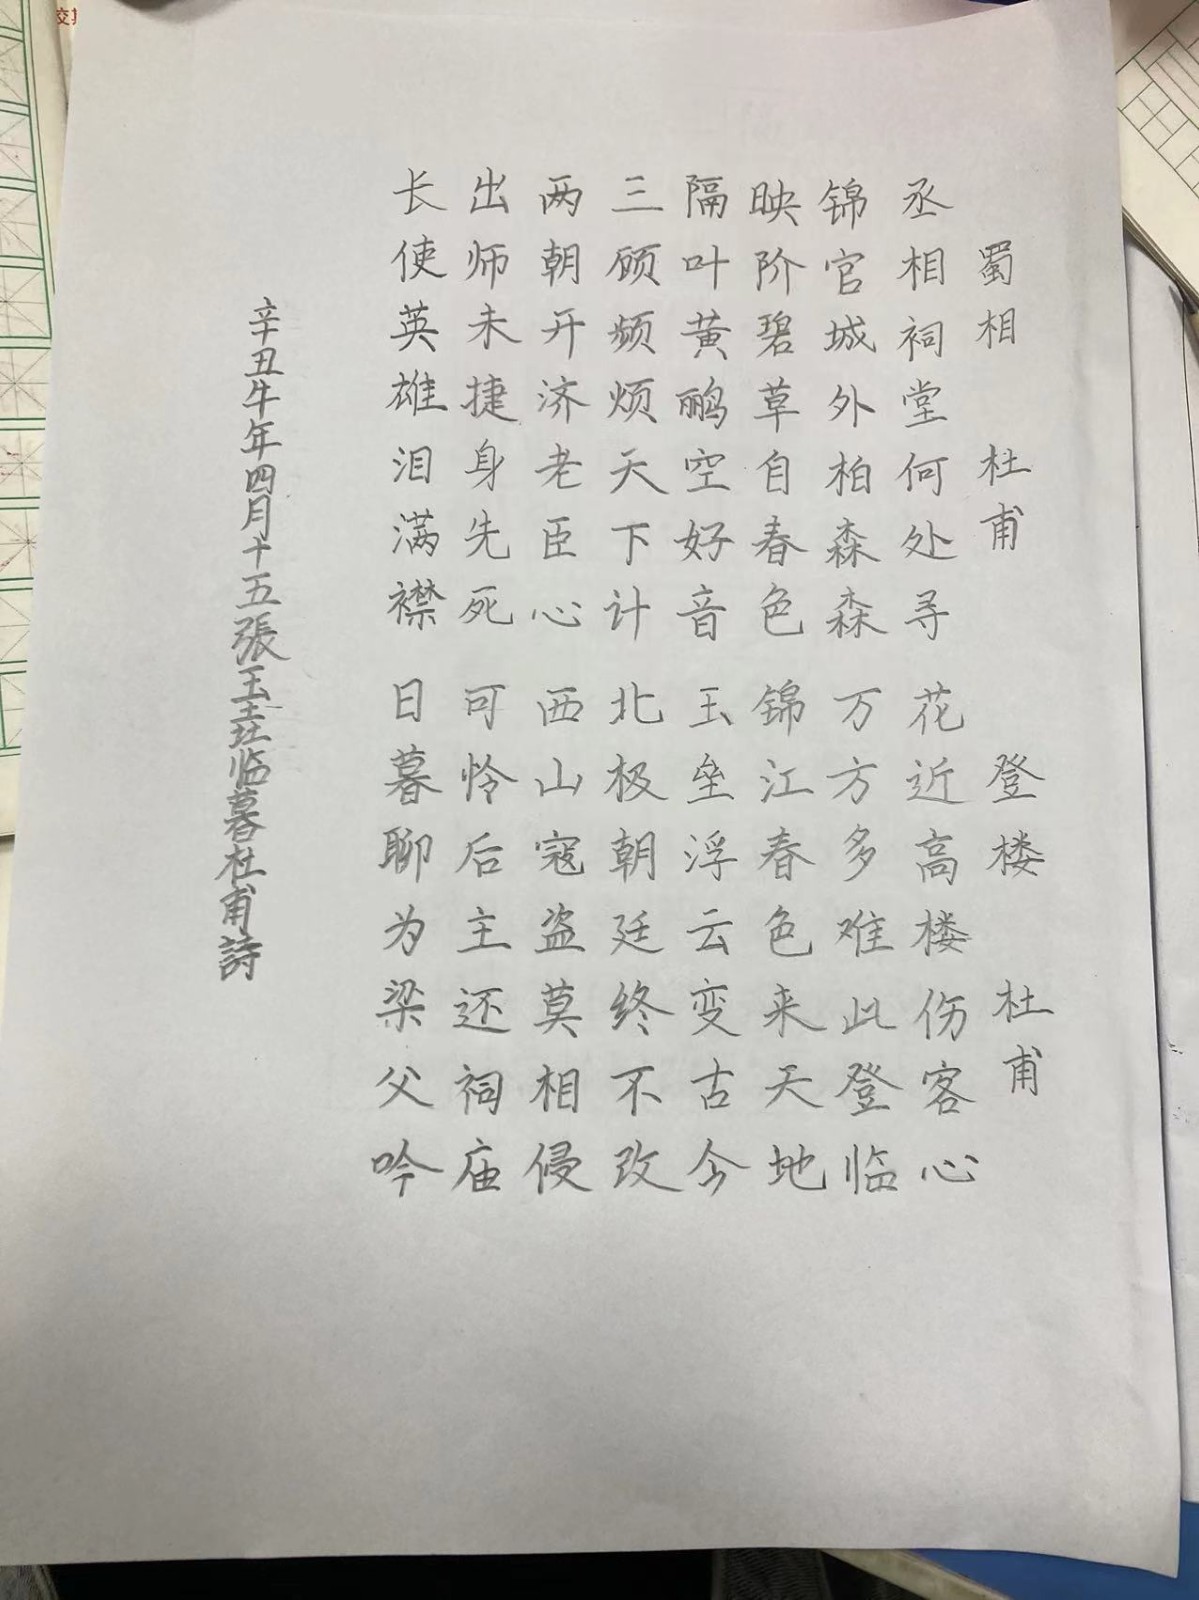 蜀相 杜甫
丞相祠堂何处寻
锦官城外柏森森
映阶碧草自春色
隔叶黄鹂空好音
三顾频烦天下计
两朝开济老臣心
出师未捷身先死
长使英雄泪满襟
登楼 杜甫
花近高楼伤客心
万方多难此登临
锦江春色来天地
玉垒浮云变古今
北极朝廷终不改
西山寇盗莫相侵
可怜后主还祠庙
日暮聊为梁父吟
辛丑牛年四月十五張玉临暮杜甫詩